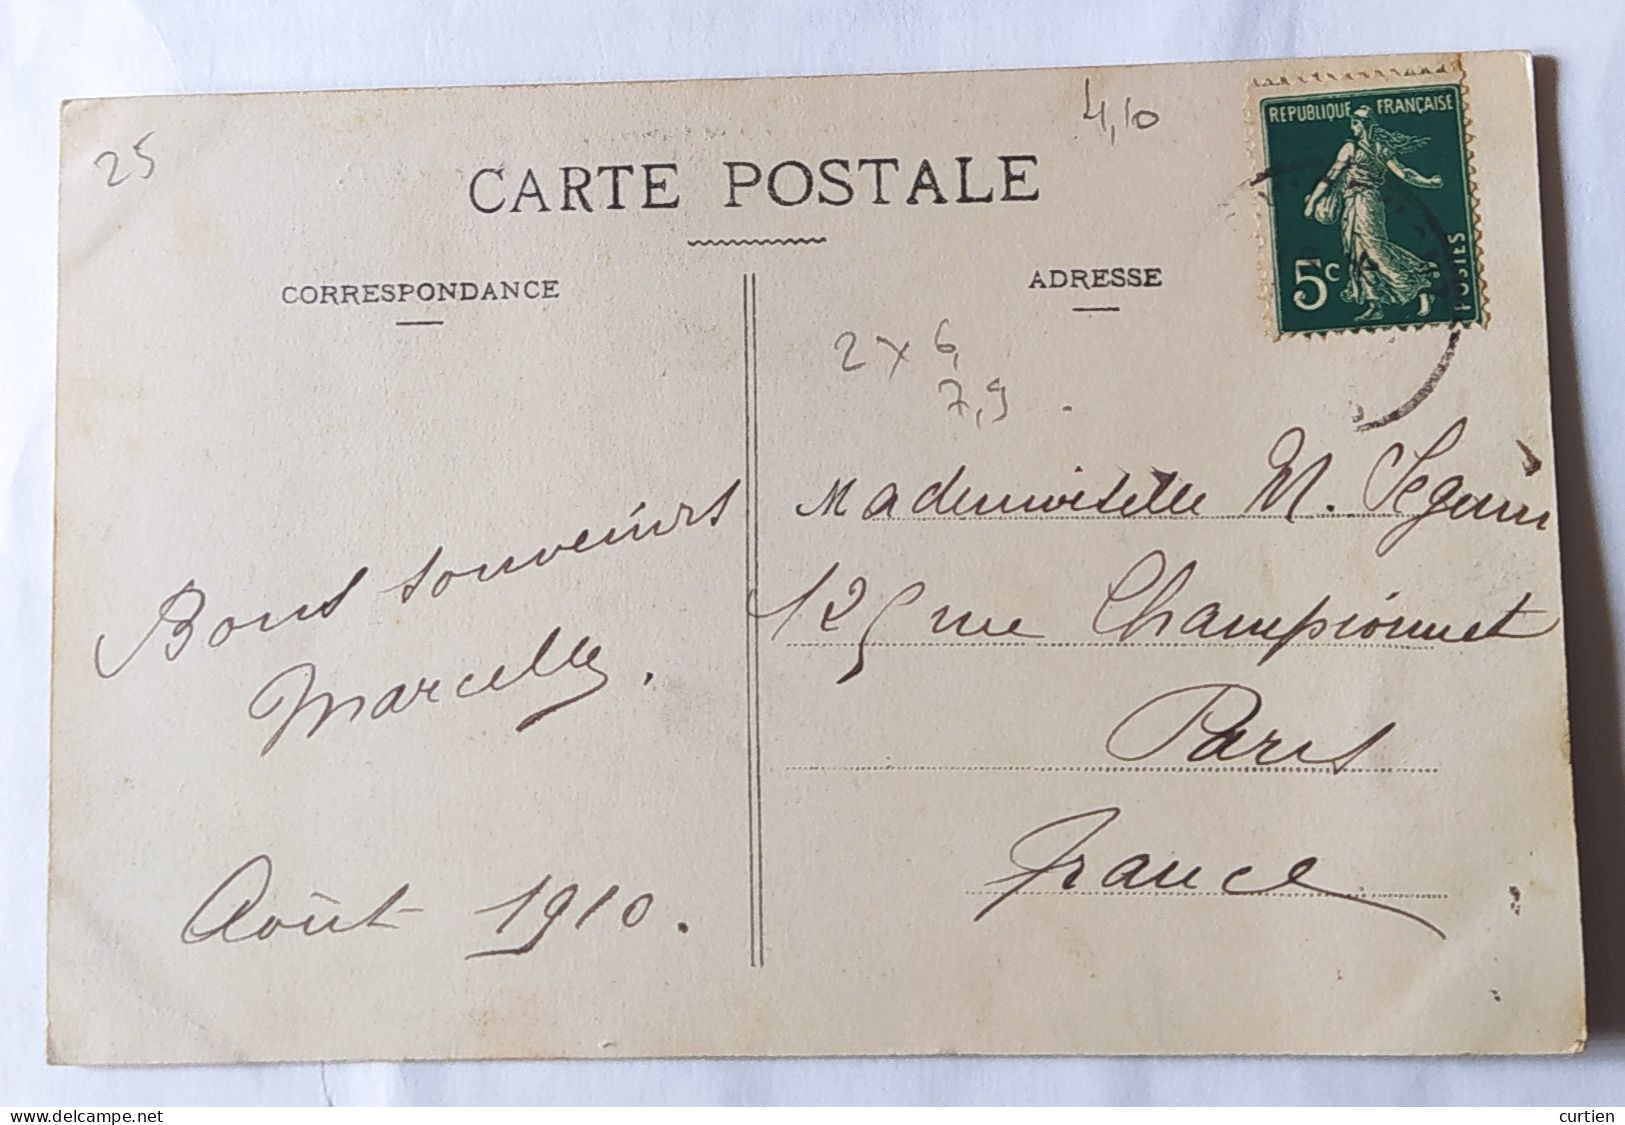 25
4,10
CARTE POSTALE
REPUBLIQUE FRANÇAISE
5c
POSTES
CORRESPONDANCE
ADRESSE
2 x 6,
7,9
Bons souvenirs
Marcelle.
Août 1910.
Mademoiselle M. Seguin
125 rue Championnet
Paris
France
www.delcampe.net
curtien